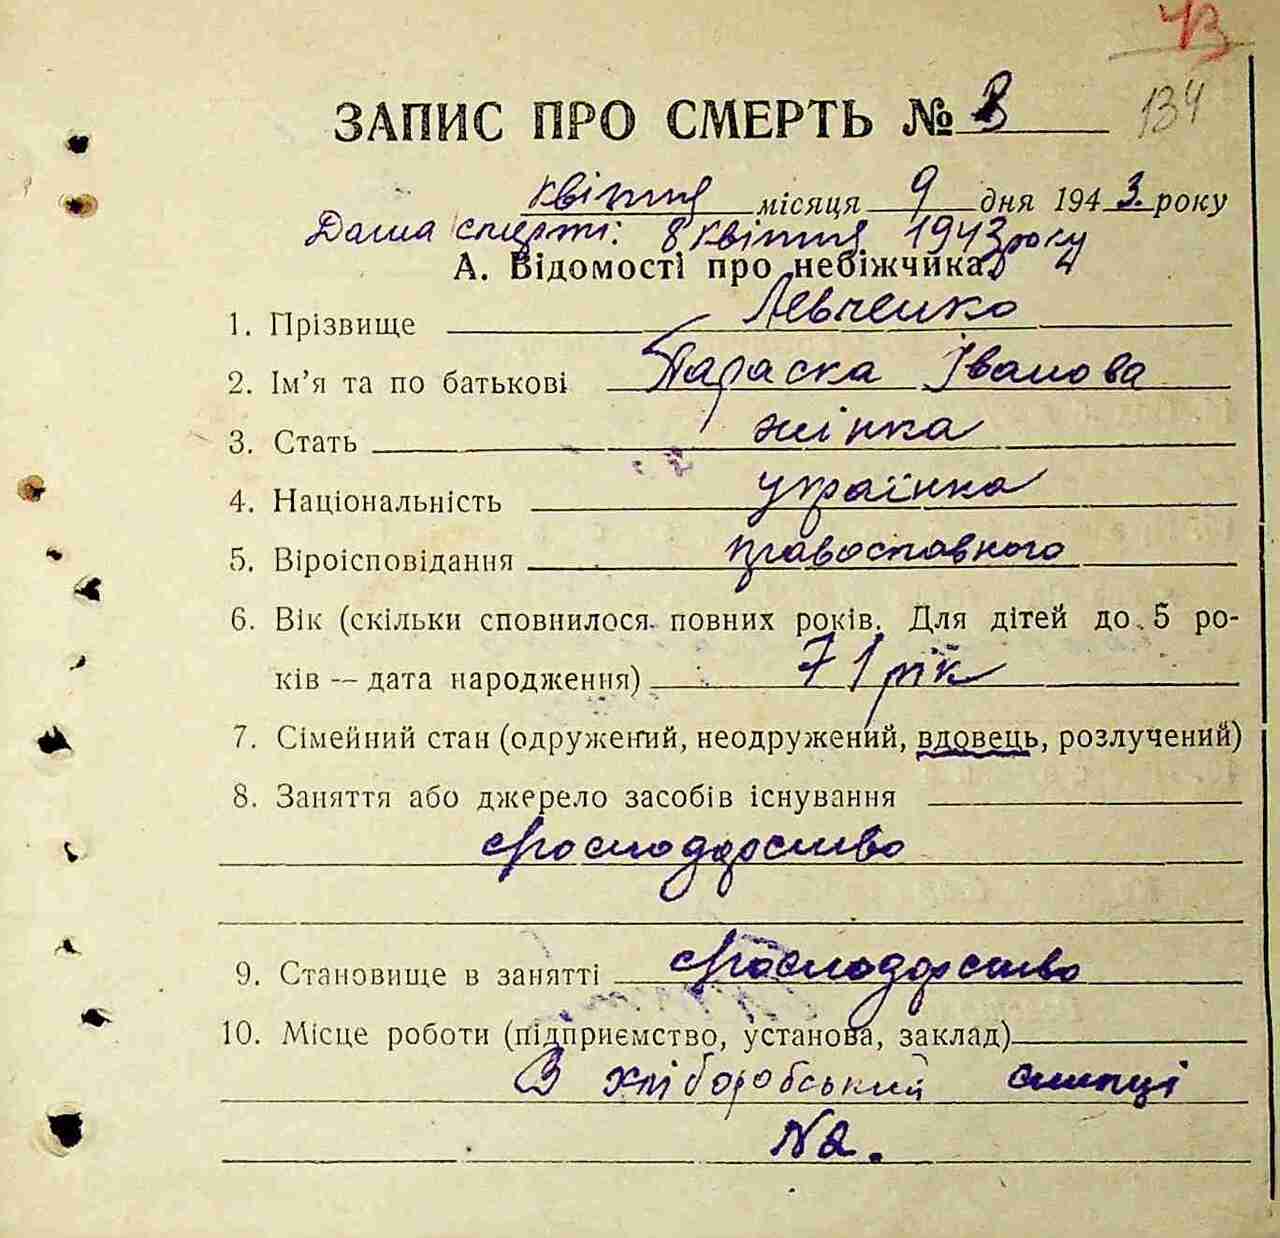 43
134
ЗАПИС ПРО СМЕРТЬ № 3
квітня місяця 9 дня 1943. року
Дата смерті: 8 квітня 1943 року
А. Відомості про небіжчика
1. Прізвище Левченко
2. Ім'я та по батькові Параска Іванова
3. Стать жінка
4. Національність українка
5. Віроісповідання православного
6. Вік (скільки сповнилося повних років. Для дітей до 5 ро-
ків — дата народження) 71 рік
7. Сімейний стан (одружений, неодружений, вдовець, розлучений)
8. Заняття або джерело засобів існування
господарство
9. Становище в занятті господарство
10. Місце роботи (підприємство, установа, заклад)
В хліборобський спілці
N2.